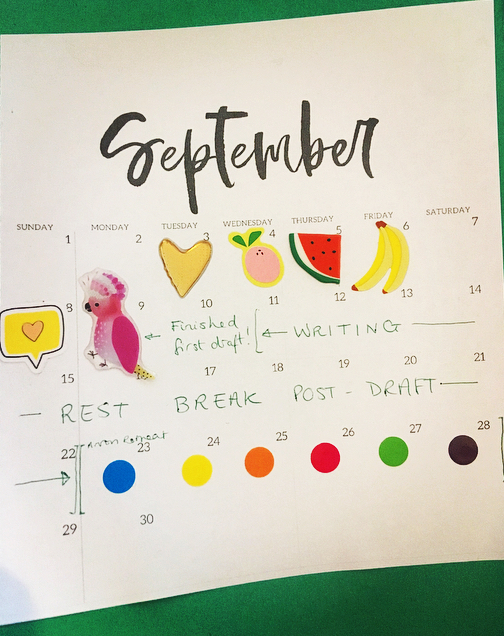 September
SUNDAY MONDAY TUESDAY WEDNESDAY THURSDAY FRIDAY SATURDAY
1 2 3 4 5 6 7
8 9 10 11 12 13 14
Finished
first draft! WRITING
15 17 18 19 20 21
REST BREAK POST-DRAFT
22 23 24 25 26 27 28
Retreat
29 30